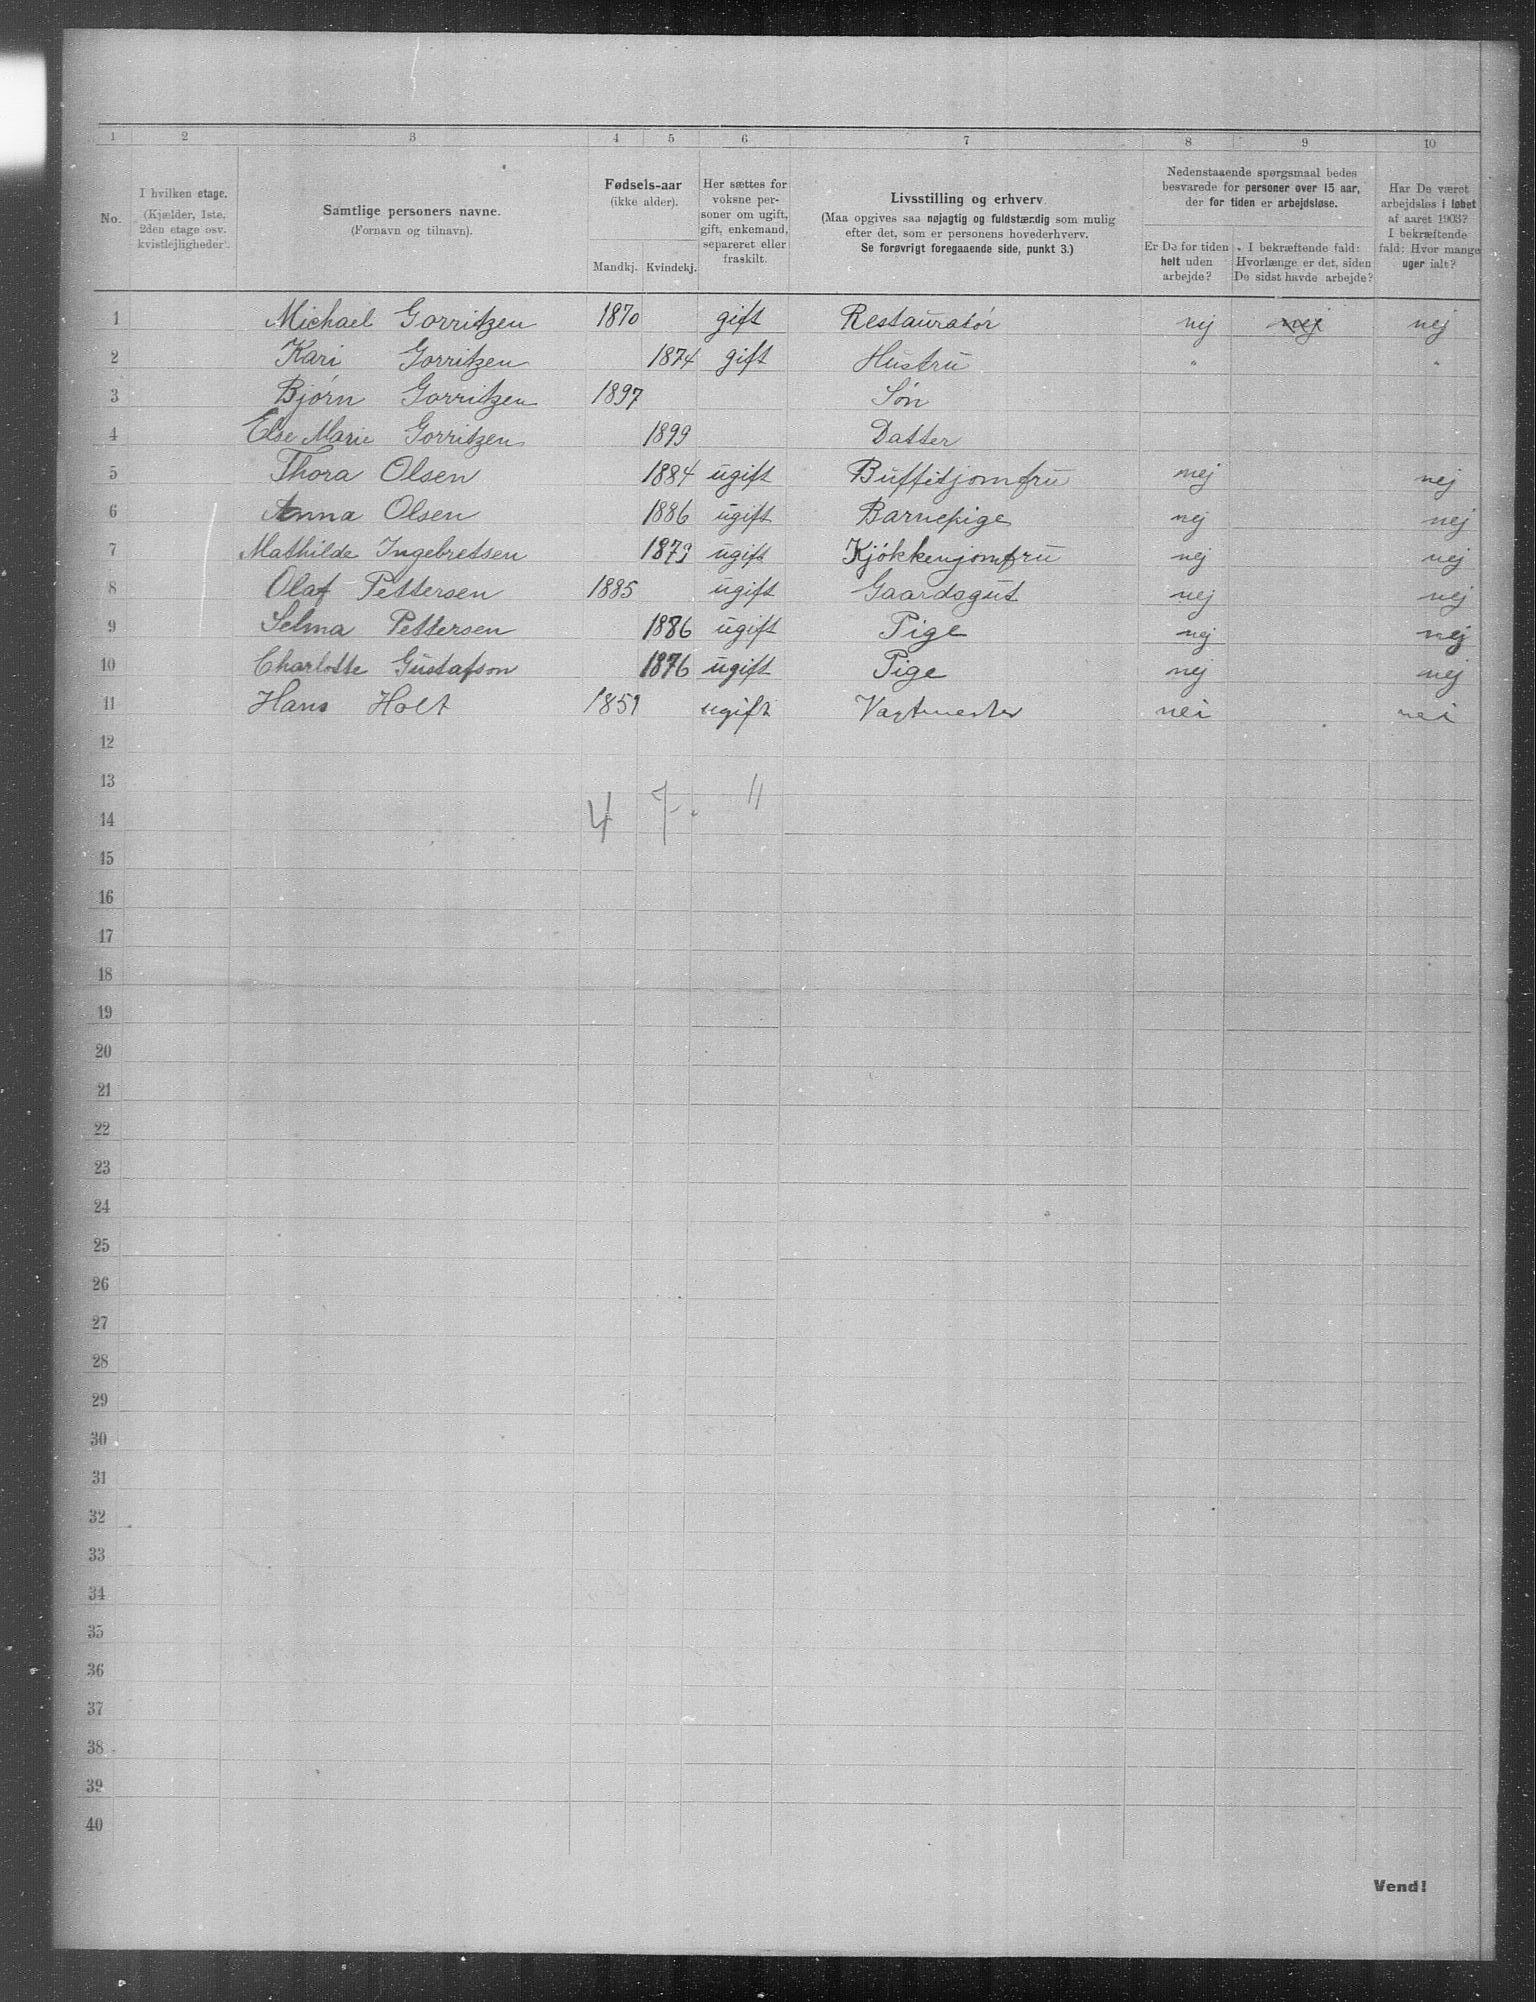 1 2 3 4 5 6 7 8 9 10
No.
I hvilken etage.
(Kjælder, 1ste,
2den etage osv.
kvistlejligheder).
Samtlige personers navne.
(Fornavn og tilnavn).
Fødsels-aar
(ikke alder).
Mandkj. Kvindekj.
Her sættes for
voksne per-
soner om ugift,
gift, enkemand,
separeret eller
fraskilt.
Livsstilling og erhverv.
(Maa opgives saa nøjagtig og fuldstændig som mulig
efter det, som er personens hovederhverv.
Se forøvrigt foregaaende side, punkt 3.)
Nedenstaaende spørgsmaal bedes
besvarede for personer over 15 aar,
der for tiden er arbejdsløse.
Er De for tiden
helt uden
arbejde?
I bekræftende fald:
Hvorlænge er det, siden
De sidst havde arbejde?
Har De været
arbejdsløs i løbet
af aaret 1903?
I bekræftende
fald: Hvor mange
uger ialt?
1 Michael Gorritzen 1870 gift Restauratør nej nej nej
2 Kari Gorritzen 1874 gift Hustru " "
3 Bjørn Gorritzen 1897 Søn
4 Else Marie Gorritzen 1899 Datter
5 Thora Olsen 1884 ugift Buffetjomfru nej nej
6 Anna Olsen 1886 ugift Barnepige nej nej
7 Mathilde Ingebretsen 1879 ugift Kjøkkenjomfru nej nej
8 Olaf Pettersen 1885 ugift Gaardsgut nej nej
9 Selma Pettersen 1886 ugift Pige nej nej
10 Charlotte Gustafson 1876 ugift Pige nej nej
11 Hans Holt 1851 ugift Vagtmester nei nei
12
13
4 7. 11
14
15
16
17
18
19
20
21
22
23
24
25
26
27
28
29
30
31
32
33
34
35
36
37
38
39
40
Vend!